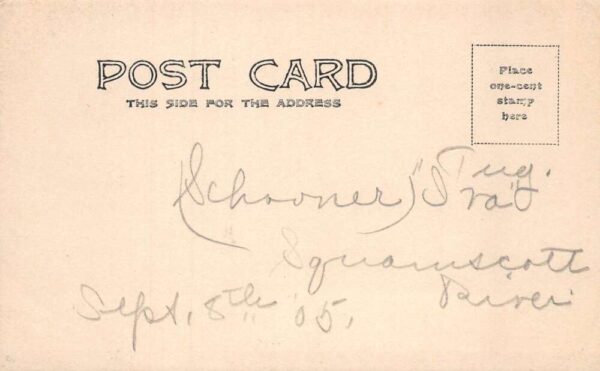 POST CARD
THIS SIDE FOR THE ADDRESS
Place
one-cent
stamp
here
Tug.
(Schooner) "Iva"
Squamscott
River
Sept. 8th '05.